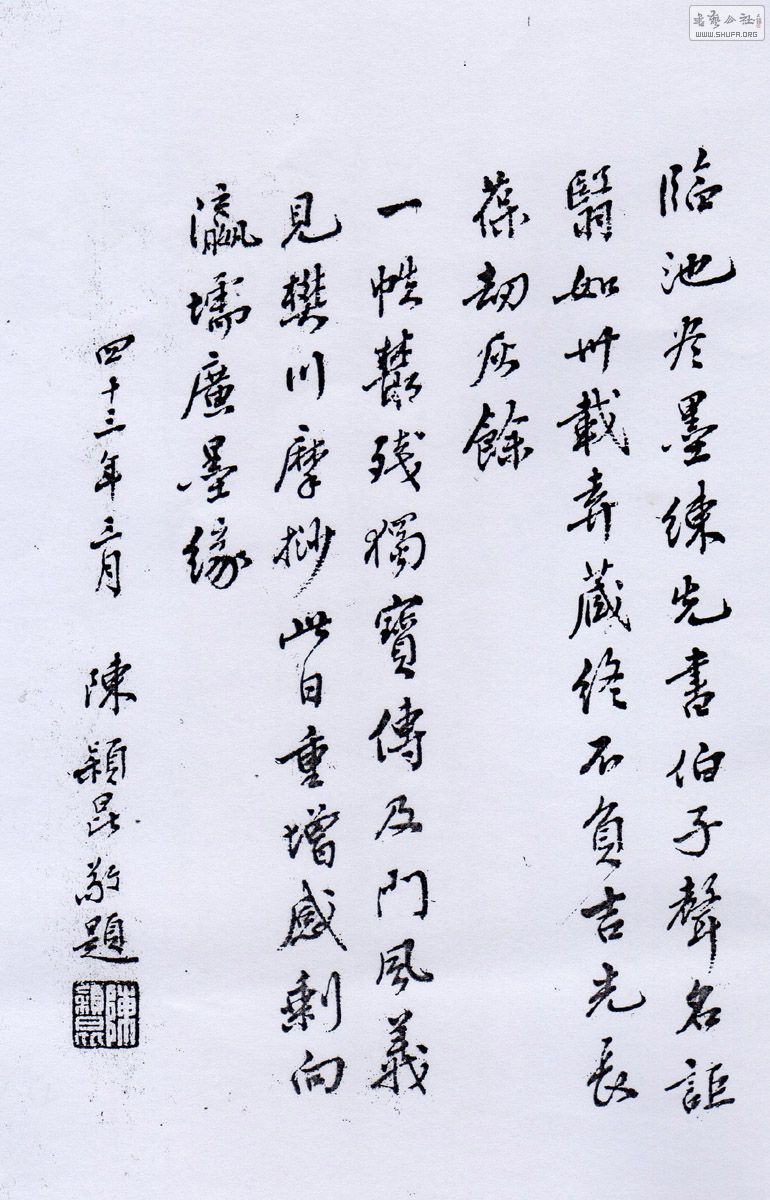 臨池廢墨練先書伯子聲名詎
翳如卅載弆藏終不負吉光長
葆劫灰餘
一帙叢殘獨寶傳及門風義
見樊川摩挱此日重增感剩向
瀛壖廣墨緣
四十三年三月 陳穎昆敬題
陳穎昆
書藝公社
WWW.SHUFA.ORG